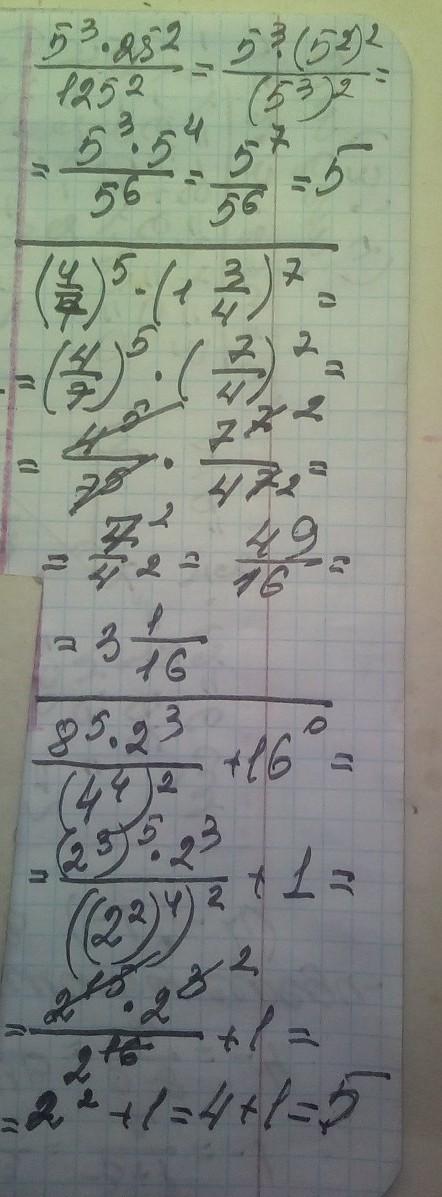 5³·25²/125² = 5³·(5²)²/(5³)² =
= 5³·5⁴/5⁶ = 5⁷/5⁶ = 5
(4/7)⁵·(1 3/4)⁷ =
= (4/7)⁵·(7/4)⁷ =
= 4⁵/7⁵ · 7⁷ ²/4⁷ ₂ =
= 7²/4² = 49/16 =
= 3 1/16
8⁵·2³/(4⁴)² + 16⁰ =
= (2³)⁵·2³/((2²)⁴)² + 1 =
= 2¹⁵·2³ ²/2¹⁶ + 1 =
= 2² + 1 = 4 + 1 = 5